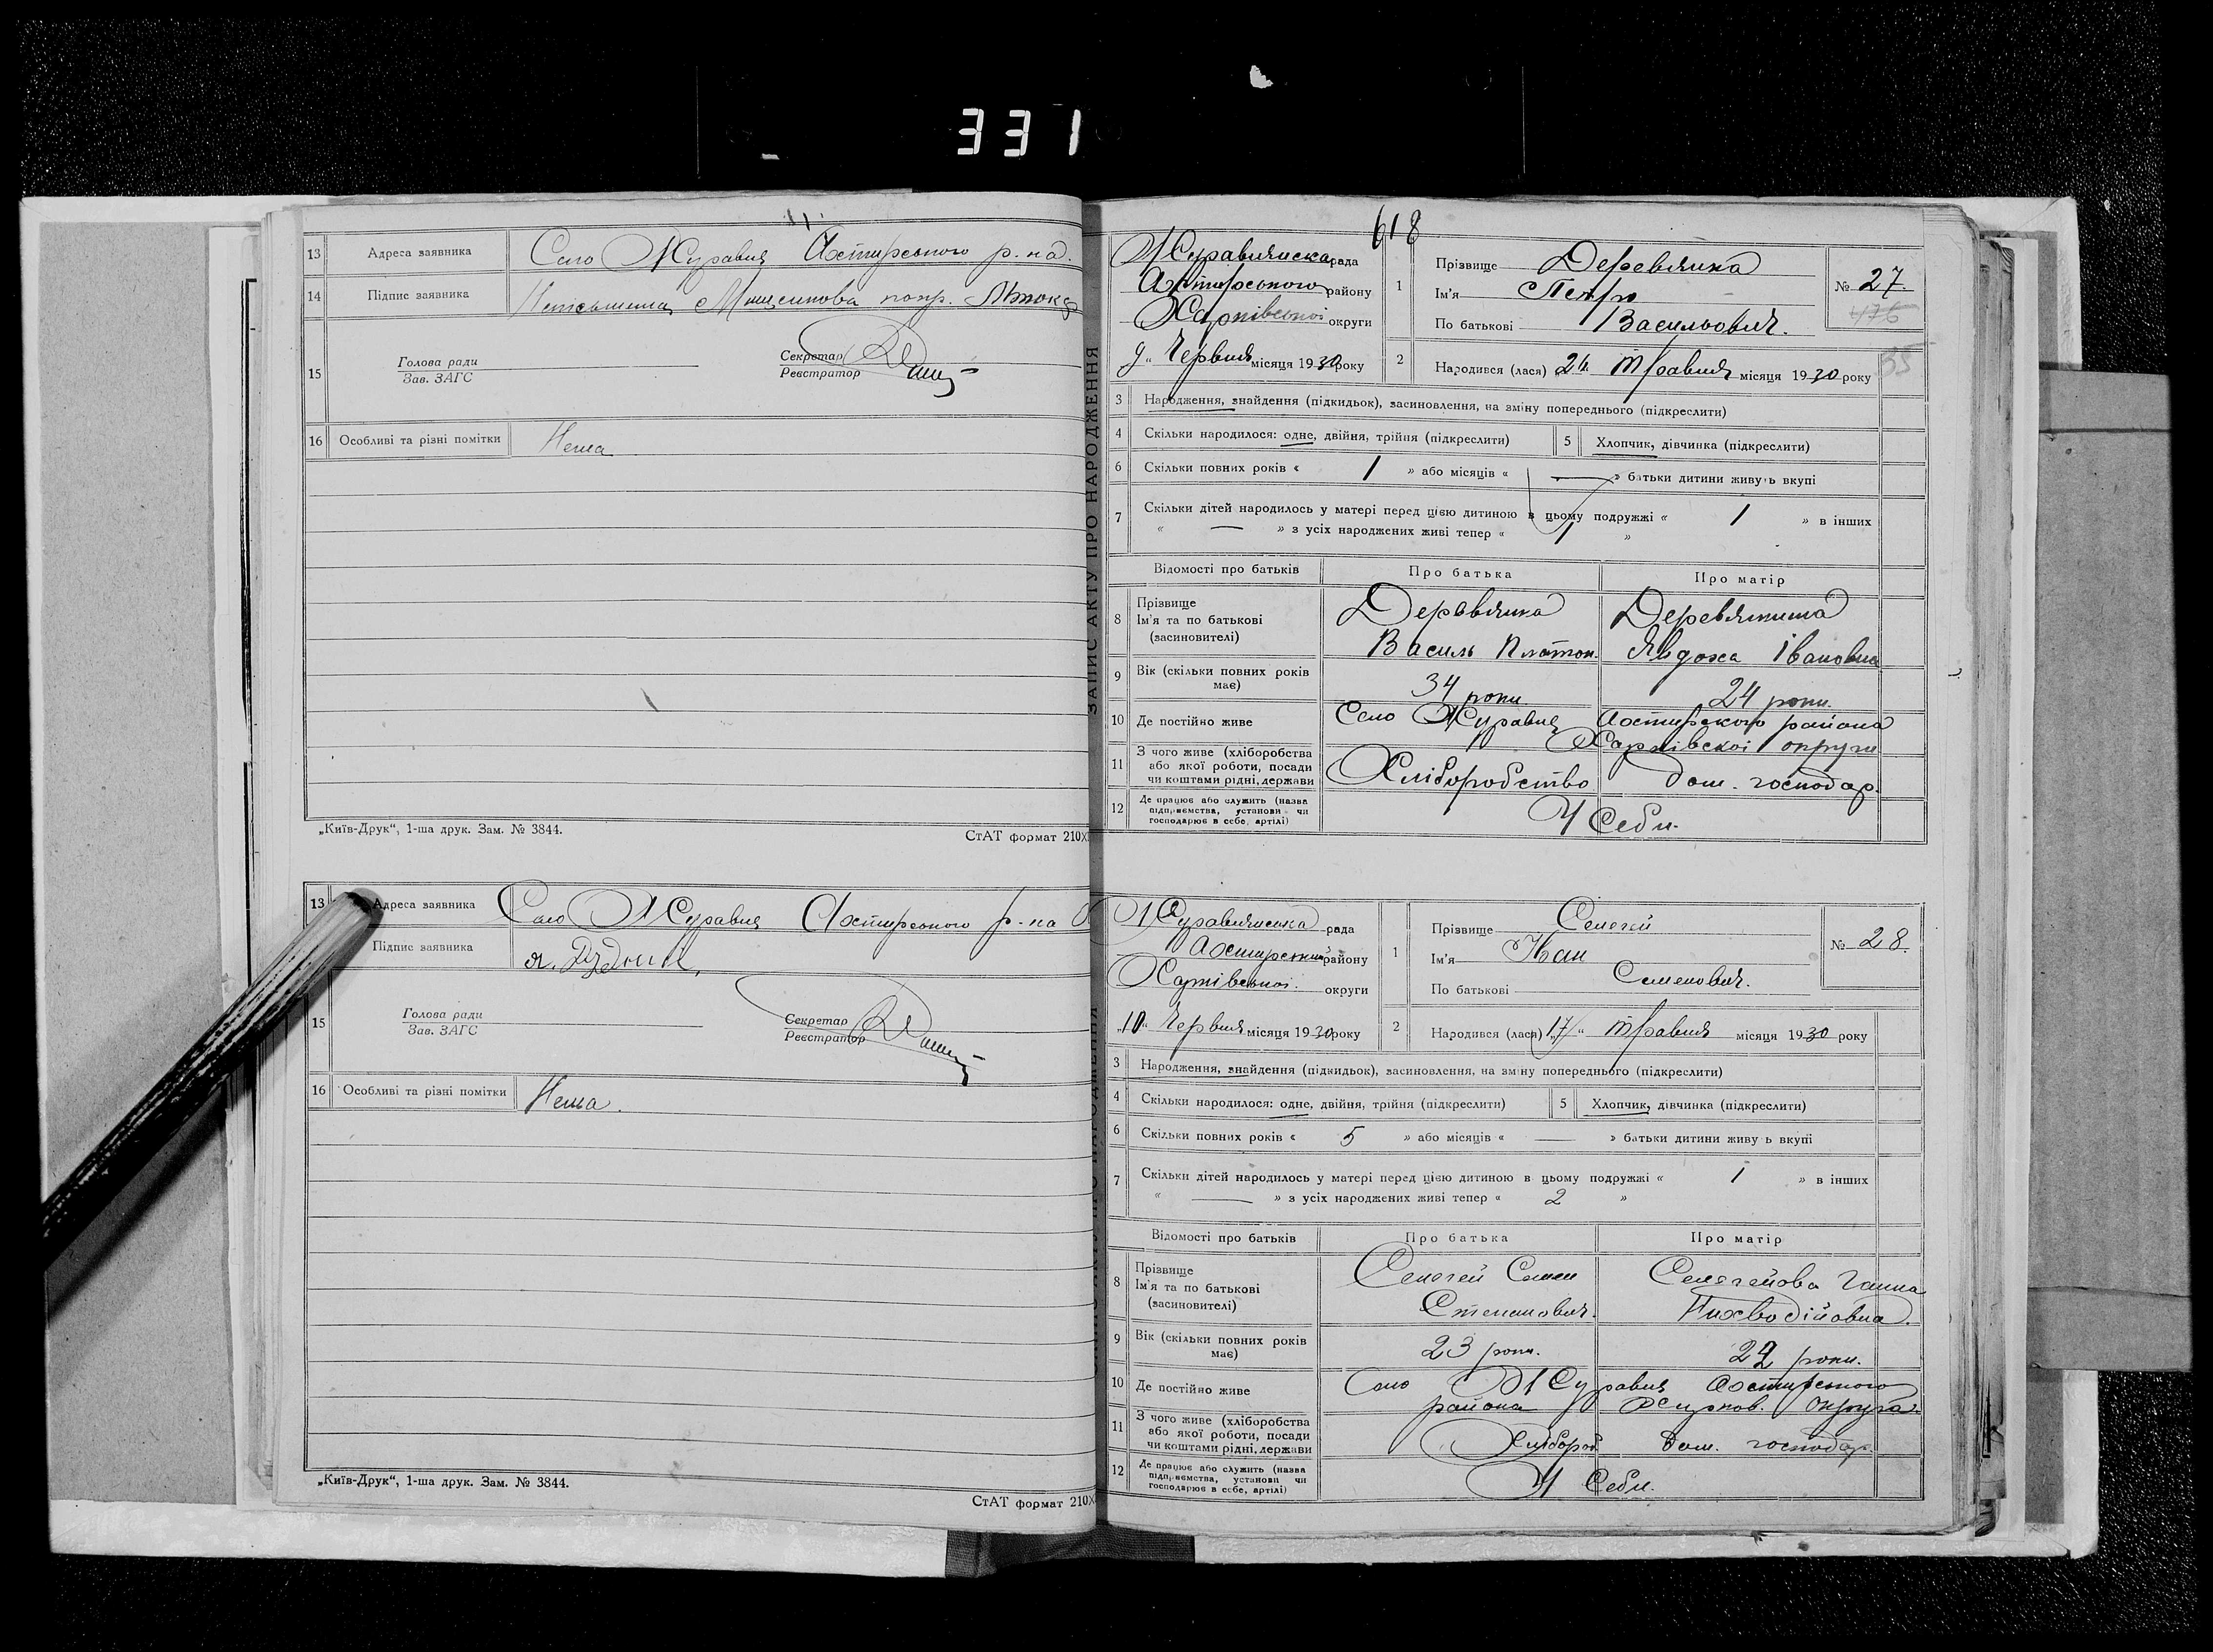 331
13 Адреса заявника Село Журавне Охтирського р-на.
14 Підпис заявника Неписьменна
15 Голова ради
Зав. ЗАГС
Секретар
Реєстратор
16 Особливі та різні помітки Нема
„Київ-Друк“, 1-ша друк. Зам. № 3844.
СтАТ формат 210X
13 Адреса заявника Село Журавне Охтирського р-на
Підпис заявника
15 Голова ради
Зав. ЗАГС
Секретар
Реєстратор
16 Особливі та різні помітки Нема.
„Київ-Друк“, 1-ша друк. Зам. № 3844.
СтАТ формат 210X
ЗАПИС АКТУ ПРО НАРОДЖЕННЯ
618
Журавнянська рада
Охтирського району
Харківської округи
9 „ Червня місяця 1930 року
1 Прізвище Деревянка
Ім'я Петро
По батькові Васильович.
№ 27.
476
35
2 Народився (лася) Травня місяця 1930 року
3 Народження, знайдення (підкидьок), засиновлення, на зміну попереднього (підкреслити)
4 Скільки народилося: одне, двійня, трійня (підкреслити) 5 Хлопчик, дівчинка (підкреслити)
6 Скільки повних років « 1 » або місяців « — » батьки дитини живуть вкупі
7 Скільки дітей народилось у матері перед цією дитиною в цьому подружжі « 1 » в інших
« — » з усіх народжених живі тепер « 1 »
Відомості про батьків Про батька Про матір
8 Прізвище
Ім'я та по батькові
(засиновителі)
Деревянка
Василь Платон.
Деревянкина
Явдоха Івановна
9 Вік (скільки повних років має) 34 роки 24 роки.
10 Де постійно живе Село Журавне Охтирского района
Харківскої округи
11 З чого живе (хліборобства
або якої роботи, посади
чи коштами рідні, держави
Хліборобство дом. господар.
12 Де працює або служить (назва
підприємства, установи чи
господарює в себе, артілі)
У Себи.
Журавнянська рада
Охтирський району
Харківської округи
„10“ Червня місяця 1930 року
1 Прізвище Селегей
Ім'я Иван
По батькові Семенович.
№ 28.
2 Народився (лася) „17“ Травня місяця 1930 року
3 Народження, знайдення (підкидьок), засиновлення, на зміну попереднього (підкреслити)
4 Скільки народилося: одне, двійня, трійня (підкреслити) 5 Хлопчик, дівчинка (підкреслити)
6 Скільки повних років « 5 » або місяців « — » батьки дитини живу ь вкупі
7 Скільки дітей народилось у матері перед цією дитиною в цьому подружжі « 1 » в інших
« — » з усіх народжених живі тепер « 2 »
Відомості про батьків Про батька Про матір
8 Прізвище
Ім'я та по батькові
(засиновителі)
Селегей Семен
Степанович.
Селегейова Ганна
9 Вік (скільки повних років має) 23 роки. 22 роки.
10 Де постійно живе Село Журавне Охтирського
района Харков. Округа.
11 З чого живе (хліборобства
або якої роботи, посади
чи коштами рідні, держави
Хлібороб дом. господар.
12 Де працює або служить (назва
підприємства, установи чи
господарює в себе, артілі)
У Себи.